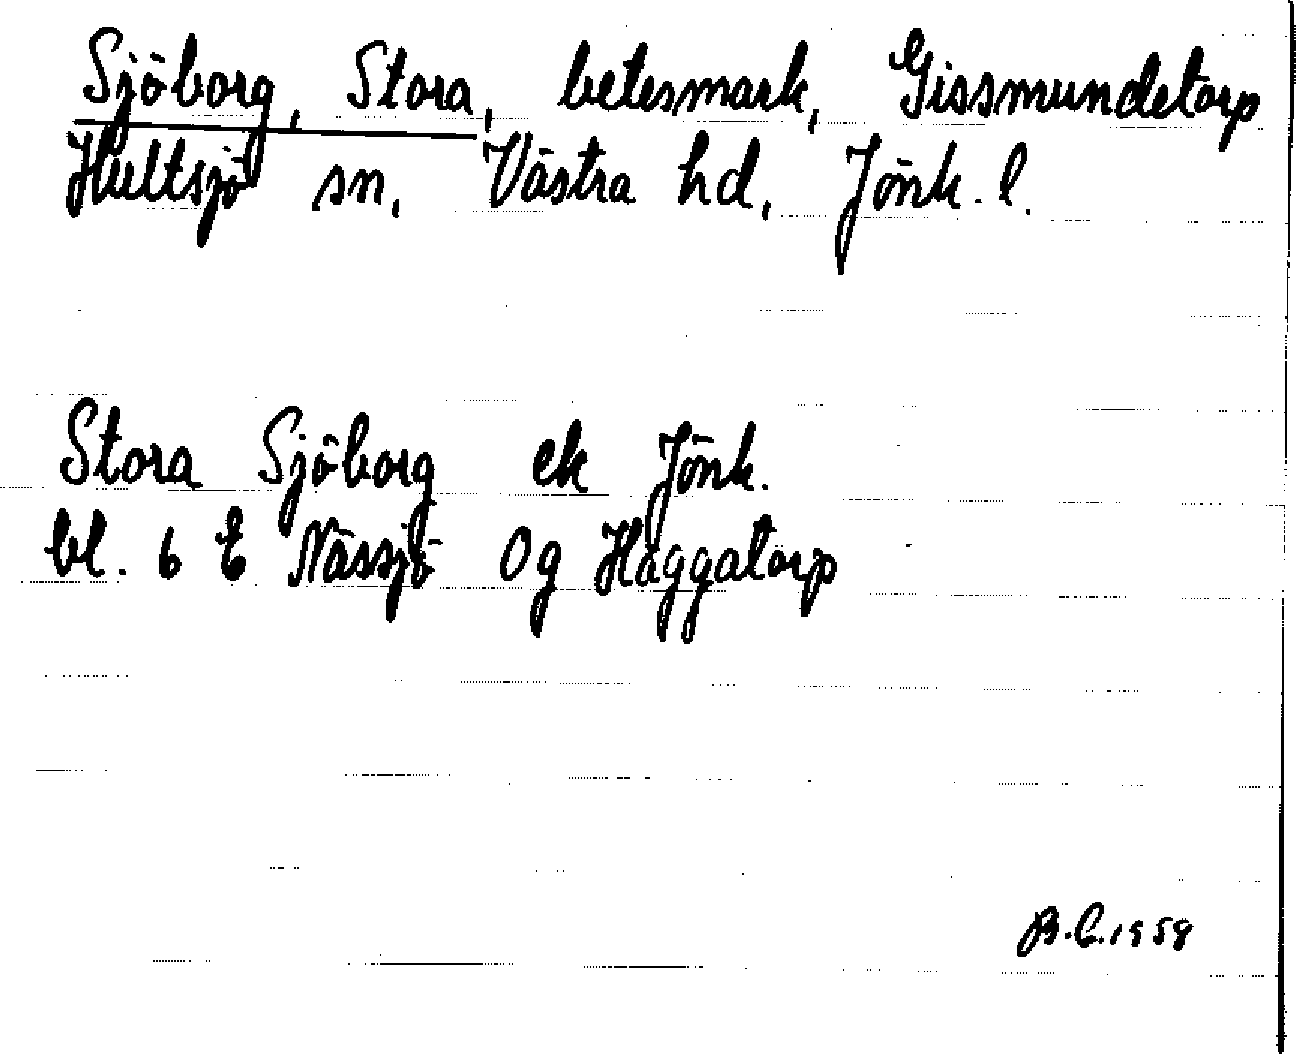 Sjöborg, Stora, betesmark, Gissmundetorp
Hultsjö sn, Västra hd, Jönk. l.
Stora Sjöborg ek Jönk.
bl. 6 E Nässjö 0g Häggatorp
B.E.1958